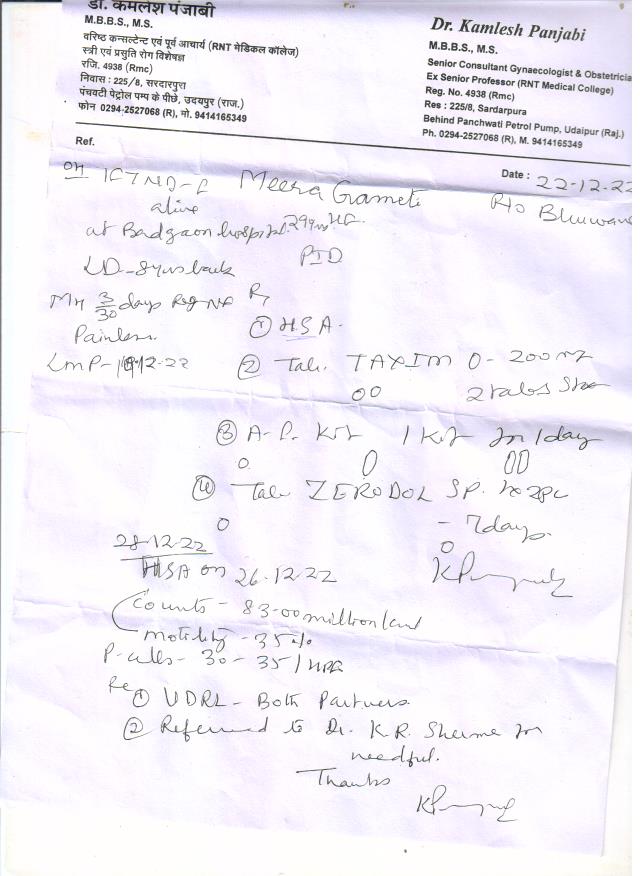 डा. कमलेश पंजाबी
M.B.B.S., M.S.
वरिष्ठ कन्सल्टेन्ट एवं पूर्व आचार्य (RNT मेडिकल कॉलेज)
स्त्री एवं प्रसुति रोग विशेषज्ञ
रजि. 4938 (Rmc)
निवास : 225/8, सरदारपुरा
पंचवटी पेट्रोल पम्प के पीछे, उदयपुर (राज.)
फोन 0294-2527068 (R), मो. 9414165349
Dr. Kamlesh Panjabi
M.B.B.S., M.S.
Senior Consultant Gynaecologist & Obstetricia
Ex Senior Professor (RNT Medical College)
Reg. No. 4938 (Rmc)
Res : 225/8, Sardarpura
Behind Panchwati Petrol Pump, Udaipur (Raj.)
Ph. 0294-2527068 (R), M. 9414165349
Ref.
Date : 22-12-22
OH 1FTND-F Meera Gameti R/o
alive
at Badgaon hospital 29yrs
LD-8yrs back PID
MH 3/30 days Reg NF Rx
Painless. ① HSA.
LMP- 12-22 ② Tab. TAXIM O - 200 mg
00 2 tabs
③ A-P. Kit 1 Kit for 1 day
④ Tab ZERODOL SP.
- 7 days.
28-12-22
HSA on 26-12-22
Counts - 83.00 million/
motility - 35%
P-cells - 30-35/HPF
Re
① VDRL - Both Partners.
② Referred to Dr. K.R. Sharma for
needful.
Thanks